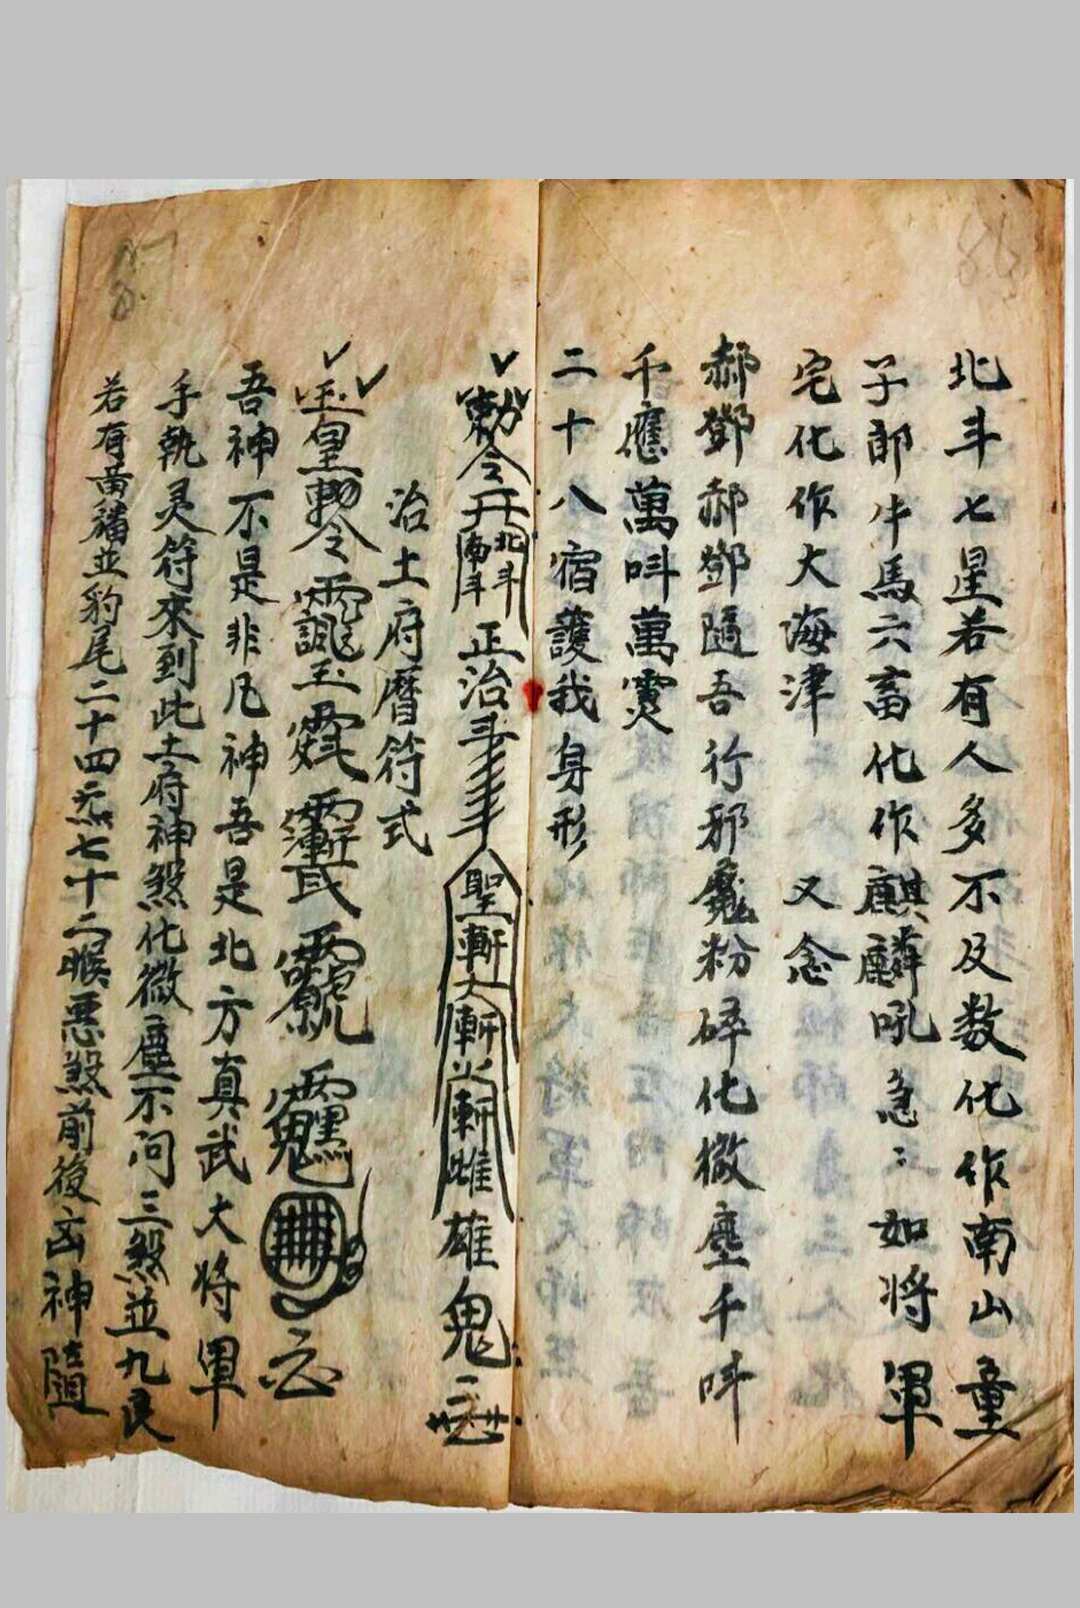 北斗七星若有人多不及数化作南山童
子郎牛馬六畜化作麒麟吼急〻如将軍
宅化作大海津　又念
郝鄧郝鄧隨吾行邪魔粉碎化微塵千呌
千應萬呌萬靈
二十八宿護我身形
勅令 北斗 南斗 正治 聖 斬 斬 斬 雌雄鬼
治土府曆符式
玉皇勅令
吾神不是非凡神吾是北方真武大将軍
手執灵符來到此土府神煞化微塵不问三煞並九良
若有黄旛並豹尾二十四炁七十二候悪煞前後凶神隨